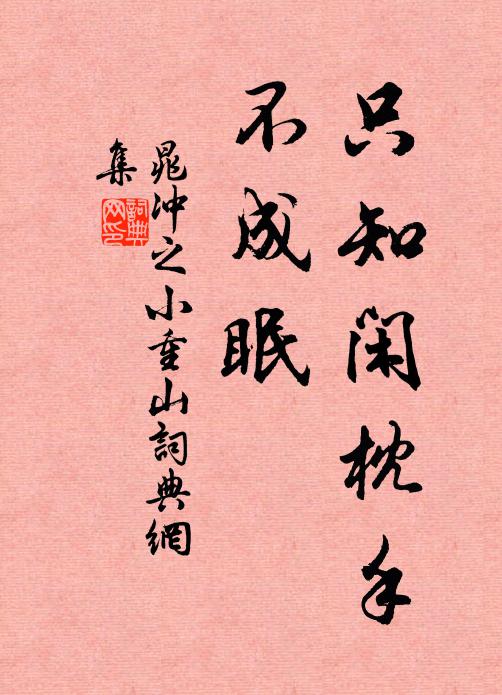 只知闲枕手
不成眠
晁冲之小重山詞典網
集
詞典
网印